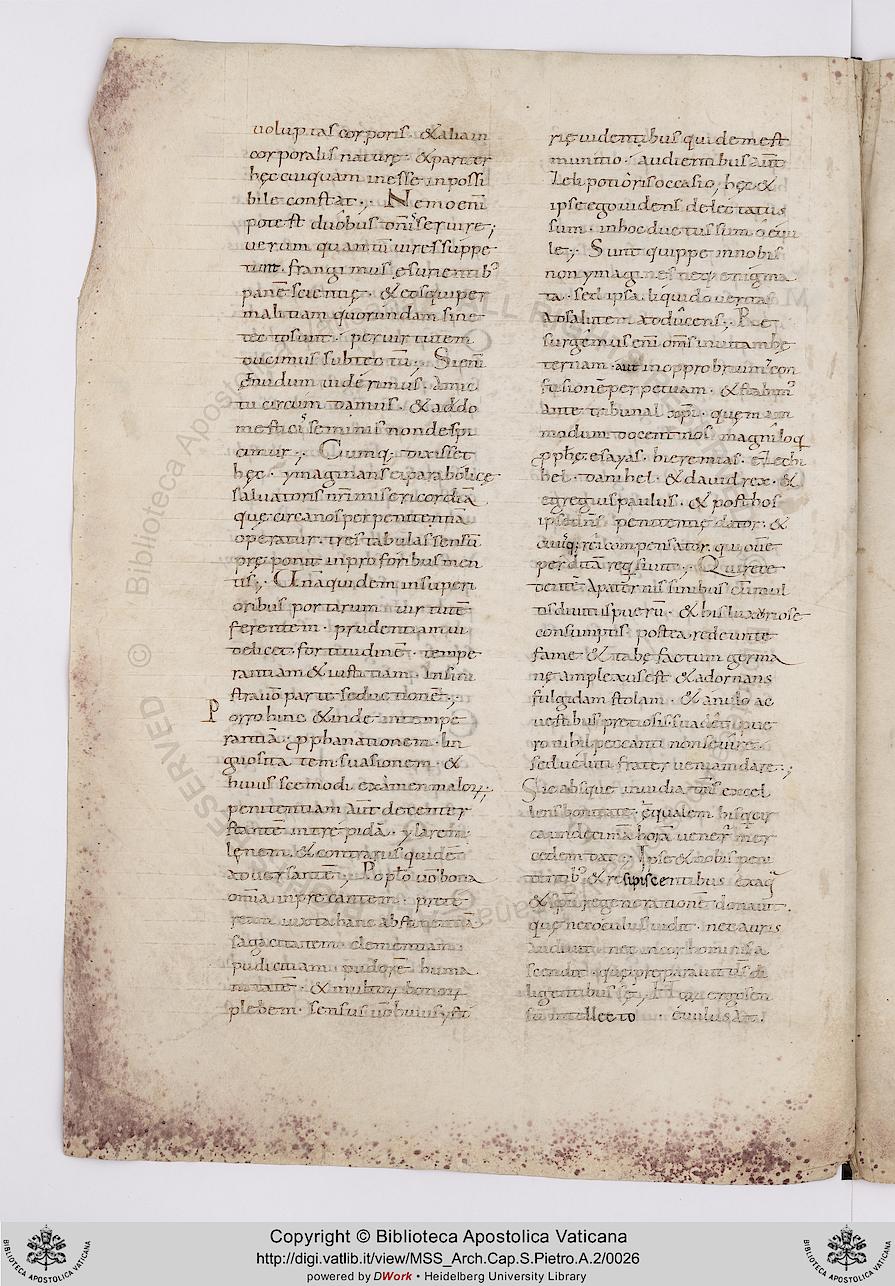 uoluptas corporis. & aliam
corporalis naturę. & pariter
hęc cuiquam inesse inpossi
bile constat;. Nemo eni͞
potest duobus dn͞is seruire;
uerum quantu͞ uires suppe
tunt. frangimus esurientib;
pane͞ scientię. & eos qui per
malitiam quorundam sine
tecto sunt. per uirtutem
ducimus sub tectu͞;. Si eni͞
nudum uiderimus. amic
tu circum damus. & ad do
mestici seminis non despi
cimur;. Cumq; dixisset
hęc. ymaginans ei parabolicę
saluatoris nr͞i misericordia͞
quę circa nos per penitentia͞
operatur. tres tabulas sensu͞
pręponit in pro foribus men
tis;. Una quidem in superi
oribus portarum uirtute͞
ferentem. prudentiam ui
delicet. fortitudine͞. tempe
rantiam & iustitiam. In sini
stra uo͞ parte seductione͞;.
Porro hinc & inde intempe
rantia͞. ꝓphanationem. lin
guosita tem. suasionem. &
huiuscemodi examen maloꝝ;
penitentiam aut͞ decenter
stante͞ intrepida͞. ylarem.
lenem. & contrarus quide͞
aduersante͞;. Poplo͞ uo͞ bona
omn͞ia inprecantem. prete
rea iuxta hanc abstinentia͞
sagacitatem. clementiam
pudicitiam. pudore͞. huma
nitate͞. & multoꝝ bonoꝝ
plebem. sensus uo͞ huius yst
rię uidentibus quidem est
munitio. audientibus aut͞
potioris occasio, hęc &
ipse ego uidens delectatus
sum. in hoc ductus sum
Sunt quippe in nobis
non ymagines neq; enigma
ta. sed ipsa liquido uerita͞s
ad salutem adducens;. Re
surgemus eni͞ om͞s in uitam hę
ternam. aut in opprobrium & con
fusione͞ perpetuam. & stabim;
ante tribunal xp͞i. quem ad
modum docent nos magniloq
ꝓphę. esayas. hieremias. ezechi
hel. danihel. & dauid rex. &
egregius paulus. & post hos
ipse dn͞s penitentię dator. &
cuiq; recompensator. qui oue͞
perdita͞ requisiuit;. Quirece
dente͞ a paternis sinibus cu͞ mul
tis diuitiis pueru͞. & his luxoriose
consumptis. postea redeunte
fame & tabe factum germa
ne amplexus est & adornans
fulgidam stolam. & anulo ac
uestibus pretiosis.
ro nihil peccanti non
sed uęluti frater ueniam dare;
Sic absque inuidia dn͞s excel
lens bonitate. ęqualem his
ca undecima͞ hora͞ uener͞ mer
cedem dat;. Ipse & nobis peni
tentib; & resipiscentibus ex aq
& sp͞u regeneratione͞ donauit.
quę nec oculus uidit. nec auris
audiuit. nec in cor hominis a
scendit. quę preparauit ds͞ di
ligentibus se;. ergo sen
su intellecto. Euilus ait͞.
Copyright © Biblioteca Apostolica Vaticana
http://digi.vatlib.it/view/MSS_Arch.Cap.S.Pietro.A.2/0026
powered by DWork • Heidelberg University Library